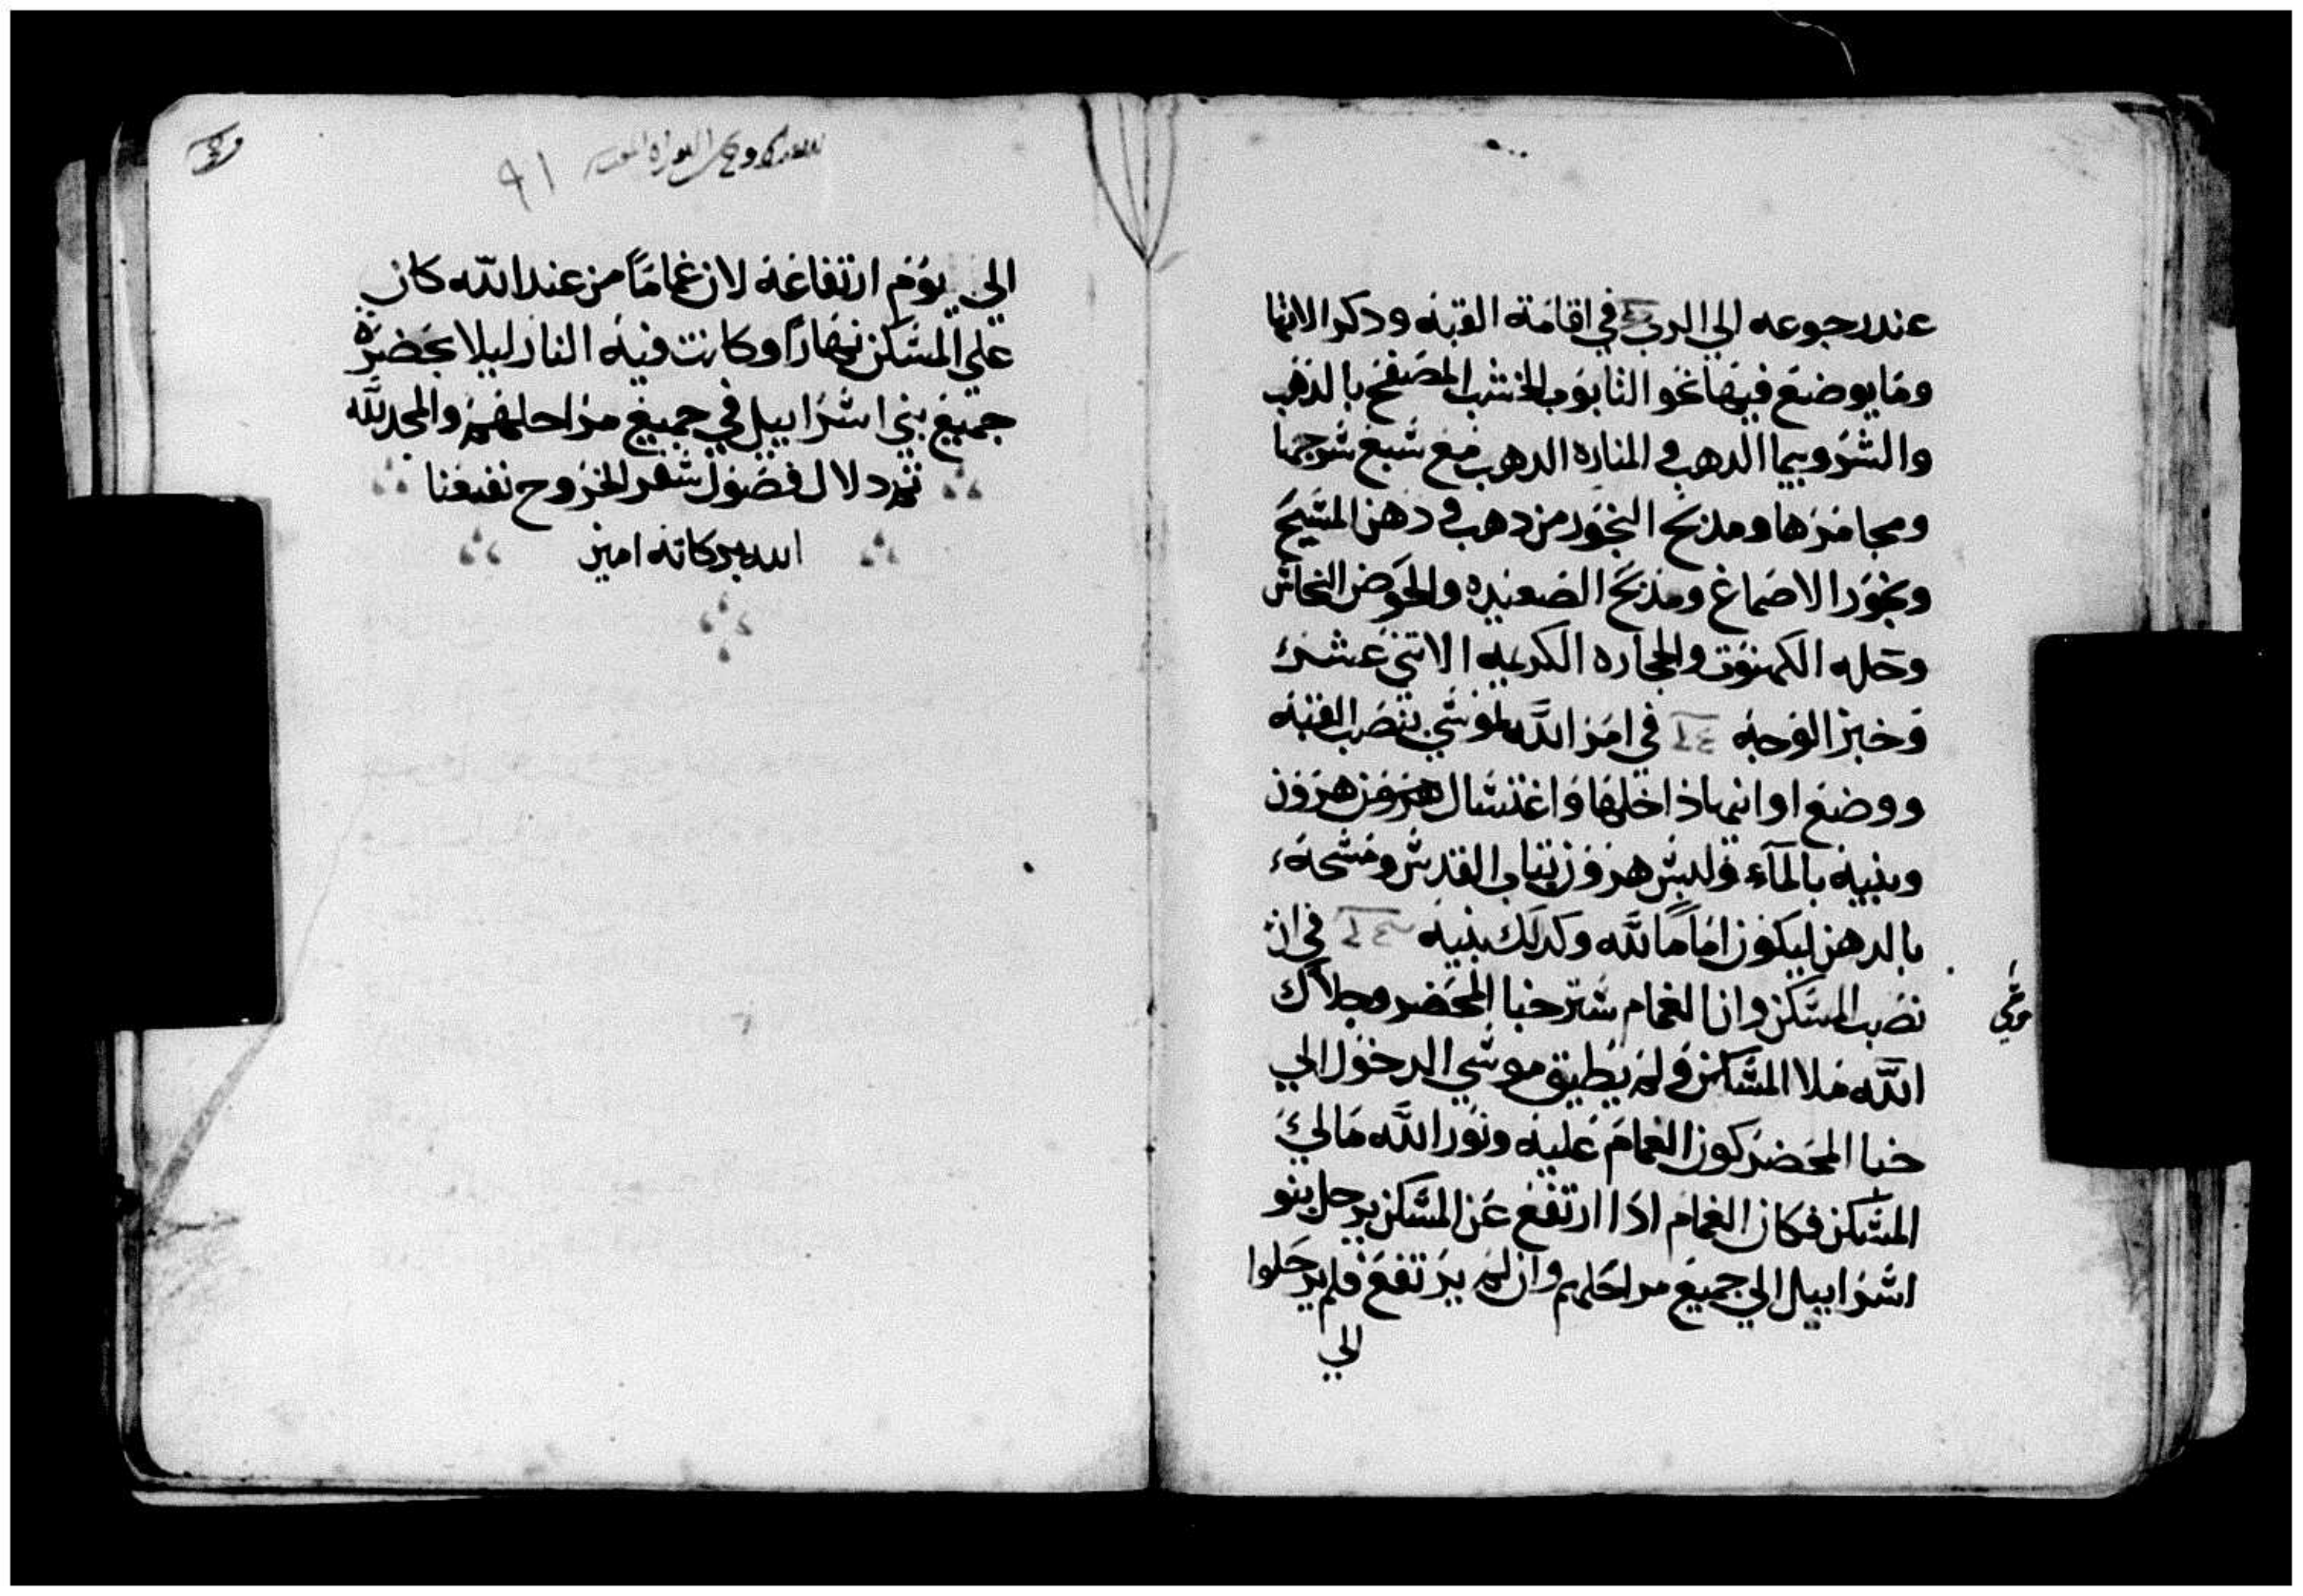 عند رجوعه الي الرب في اقامة القبه ودكر الانها
وما يوضع فيها نحو التابوب الخشب المصفح بالدهب
والشروبيما الدهب والمناره الدهب مع سبع سرجها
ومجامرها ومدبح البخور من دهب ودهن المسيح
وبخور الاصماغ ومدبح الصعيده والحوض النحاس
وحله الكهنوت والحجاره الكريمه الاتني عشر
وخبز الوجه في امر الله لموسي بنصب القبه
ووضع اوانيها داخلها واغتسال هرون
وبنيه بالمآء ولبس هرون تياب القدس ومسحه
بالدهن ليكون اماما لله وكدلك بنيه في ان
نصب المسكن وان الغمام ستر خبا المحضر وجلال
الله ملا المسكن ولم يطيق موسي الدخول الي
خبا المحضر كون الغمام عليه ونور الله مالي
المسكن فكان الغمام ادا ارتفع عن المسكن يرحل بنو
اسراييل الي جميع مراحلهم وان لم يرتفع فلم يرحلوا
الي
الي يوم ارتفاعه لان غماما من عند الله كان
علي المسكن نهارا وكانت فيه النار ليلا بحضره
جميع بني اسراييل في جميع مراحلهم والمجد لله
تم دلال فصول سفر الخروج نفعنا
الله بركاته امين
٩١